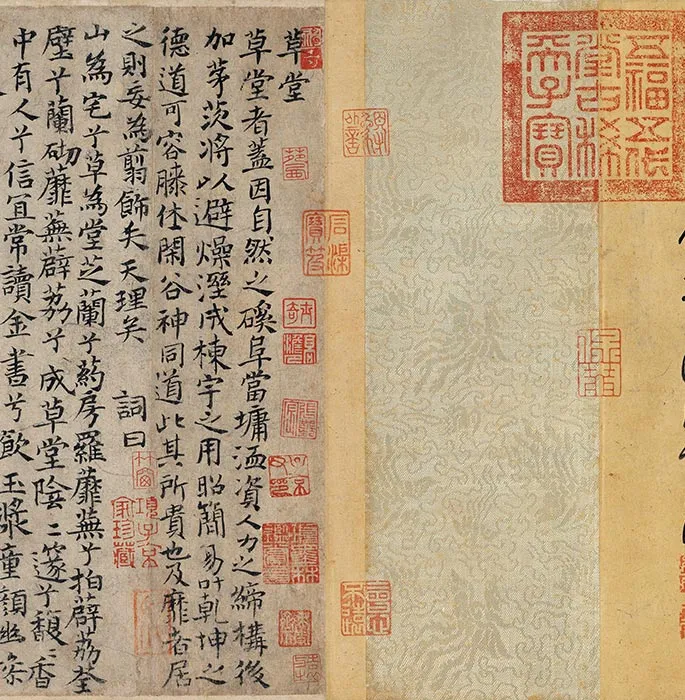 五福五代
堂古稀
天子寶
草堂
草堂者蓋因自然之磎阜當墉洫資人力之締構後
加茅茨將以避燥溼成棟宇之用昭簡易叶乾坤之
德道可容膝休閑谷神同道此其所貴也及靡者居
之則妄為翦飾失天理矣 詞曰
山為宅兮草為堂芝蘭兮葯房羅蘼蕪兮拍薜荔荃
壁兮蘭砌蘼蕪薜荔兮成草堂陰〻邃兮馥〻香
中有人兮信宜常讀金書兮飲玉漿童顏幽操
項子京
家珍藏
會心
不遠